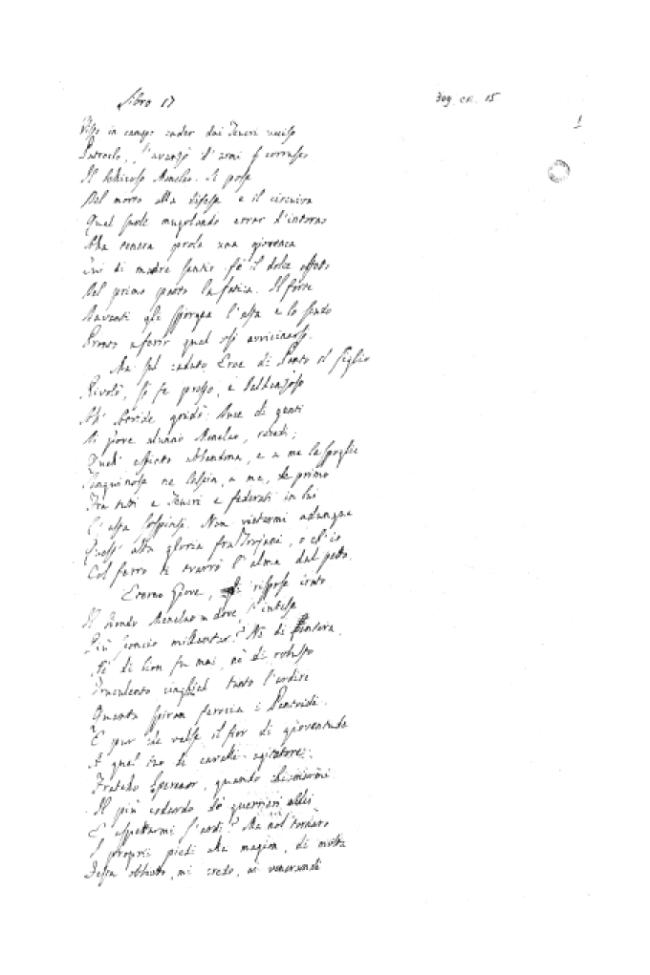 Libro 17
309. ca. 15
1
Visto in campo cader dai Teucri ucciso
Patroclo, s'avanzò d'armi corrusco
Il bellicoso Menelao. Si pose
Del morto alla difesa e il circuiva
Qual suole mugolando errar d'intorno
Alla tenera prole una giovenca
Cui di madre sentir fè il dolce affetto
Del primo parto la fatica. Il forte
Davanti gli sporgea l'asta e lo scudo
Pronto a ferir qual osi avvicinarsi.
Ma sul caduto Eroe di Panto il figlio
Rivolò, si fe presso, e baldanzoso
All' Atride gridò: Duce di genti
Di Giove alunno Menelao, recedi;
Quell' estinto abbandona, e a me le spoglie
Sanguinose ne lascia, a me, che primo
Fra tutti e Teucri e federati in lui
L' asta sospinsi. Non vietarmi adunque
Quest' alta gloria fra Trojani, o ch'io
Col ferro ti trarrò l'alma dal petto.
Eterno Giove, gli rispose irato
Il biondo Menelao dove s'intese
Più sconcio millantar? Nè di pantera
Nè di lion fu mai, nè di robusto
Truculento cinghial tanto l'ardire
Quanta spiran ferocia i Pantoidi.
E pur che valse il fior di gioventude
A quel tuo di cavalli agitatore
Fratello Iperenor, quando chiamarmi
Il più codardo de' guerrieri
E aspettarmi s'ardì? Ma nol tornaro
I proprii piedi alla magion, di molta
obbietto, mi credo, ai venerandi